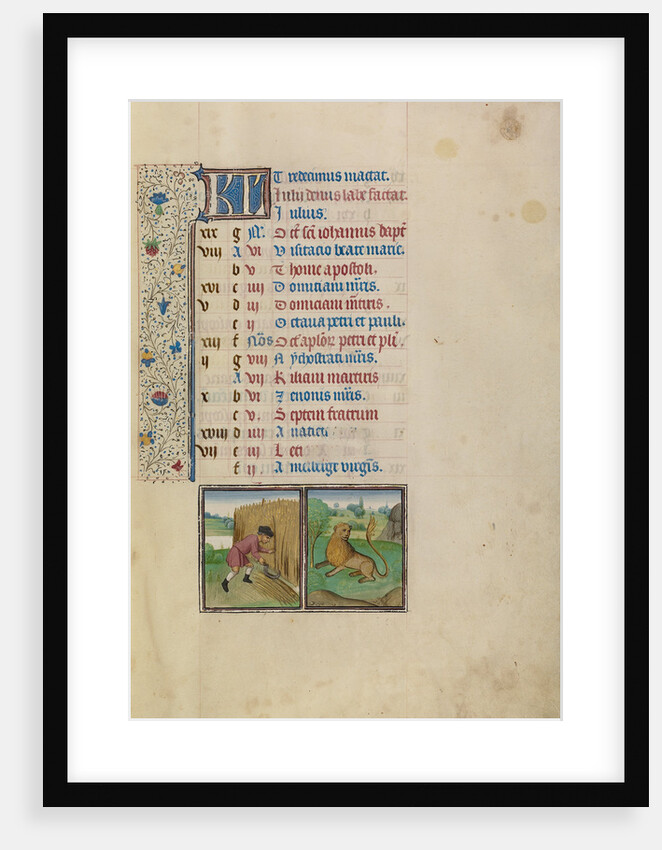 KL Tredecimus mactat.
Iulii denus labe factat.
Iulius.
xix g kl. Oct sci iohannis bapt
viii A vi Visitacio beate marie.
b v Thome apostoli.
xvi c iiii Domiciani mris.
v d iii Domiciani mtiris.
e ii Octava petri et pauli.
xiii f Nos Oct aplor petri et pli
ii g viii Nychostrati mris.
A vii Kiliani martiris
x b vi Zenonis mris.
c v. Septem fratrum
xviii d iiii
vii e iii Leti
f ii Amelberge virgis.